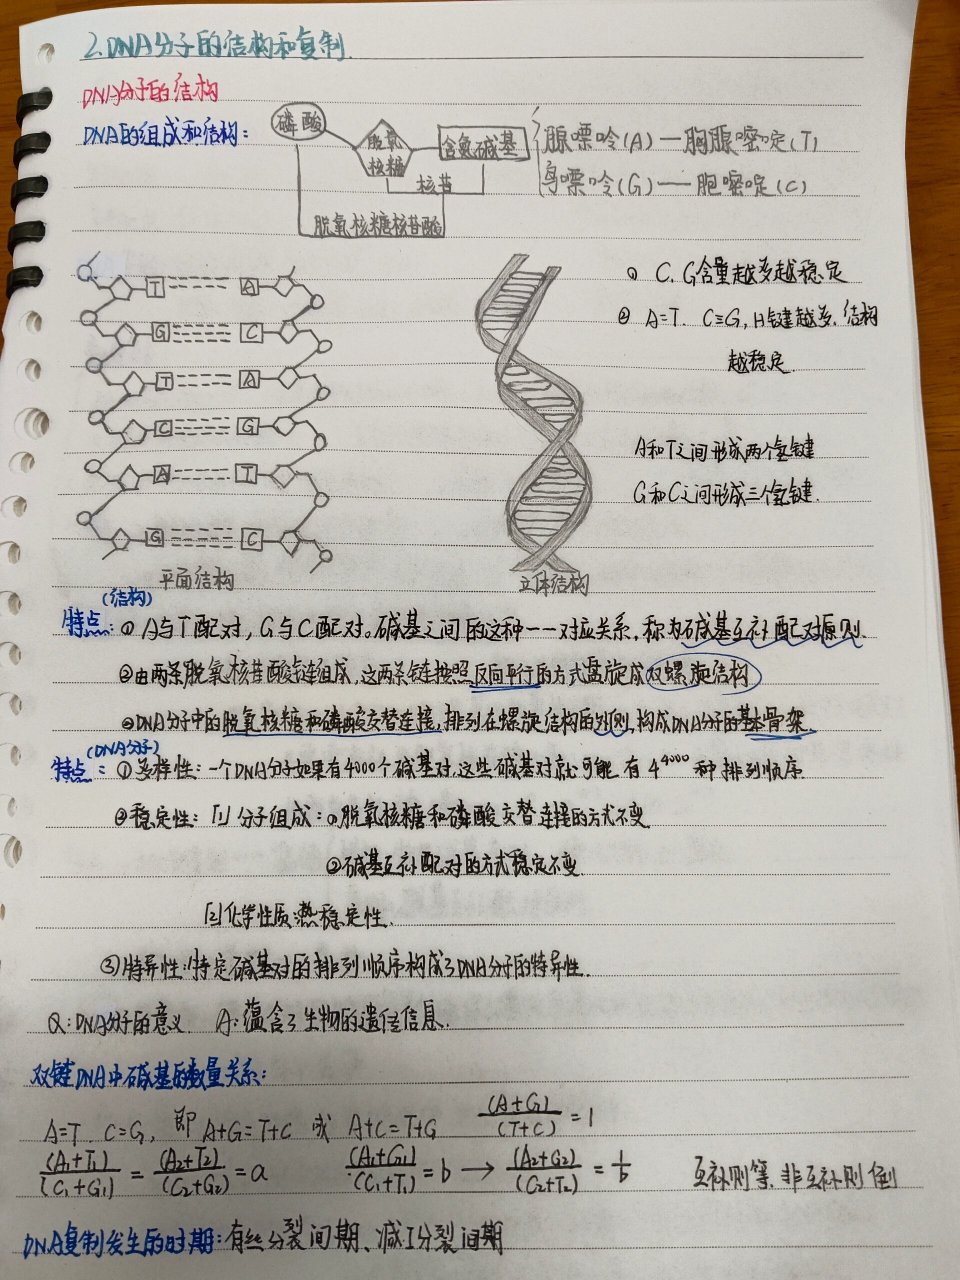 2.DNA分子的结构和复制.
DNA分子的结构
DNA的组成和结构:
磷酸
脱氧核糖
含氮碱基
腺嘌呤(A)—胸腺嘧啶(T)
鸟嘌呤(G)—胞嘧啶(C)
核苷
脱氧核糖核苷酸
T A
G C
T A
C G
A T
G C
平面结构
立体结构
① C、G含量越多越稳定
② A=T、C≡G,H键越多,结构
越稳定.
A和T之间形成两个氢键
G和C之间形成三个氢键.
(结构)
特点:① A与T配对,G与C配对。碱基之间的这种一一对应关系,称为碱基互补配对原则.
②由两条脱氧核苷酸链组成,这两条链按照反向平行的方式盘旋成双螺旋结构
③DNA分子中的脱氧核糖和磷酸交替连接,排列在螺旋结构的外侧,构成DNA分子的基本骨架.
(DNA分子)
特点:①多样性:一个DNA分子如果有4000个碱基对,这些碱基对就可能有4⁴⁰⁰⁰种排列顺序.
②稳定性: [1]分子组成:①脱氧核糖和磷酸交替连接的方式不变
②碱基互补配对的方式稳定不变.
[2]化学性质:热稳定性.
③特异性:特定碱基对的排列顺序构成了DNA分子的特异性.
Q:DNA分子的意义. A:蕴含了生物的遗传信息.
双链DNA中碱基的数量关系:
A=T、C=G, 即 A+G=T+C 或 A+C=T+G (A+G)/(T+C)=1
(A₁+T₁)/(C₁+G₁)=(A₂+T₂)/(C₂+G₂)=a (A₁+G₁)/(C₁+T₁)=b→(A₂+G₂)/(C₂+T₂)=1/b 互补则等,非互补则倒
DNA复制发生的时期:有丝分裂间期、减I分裂间期